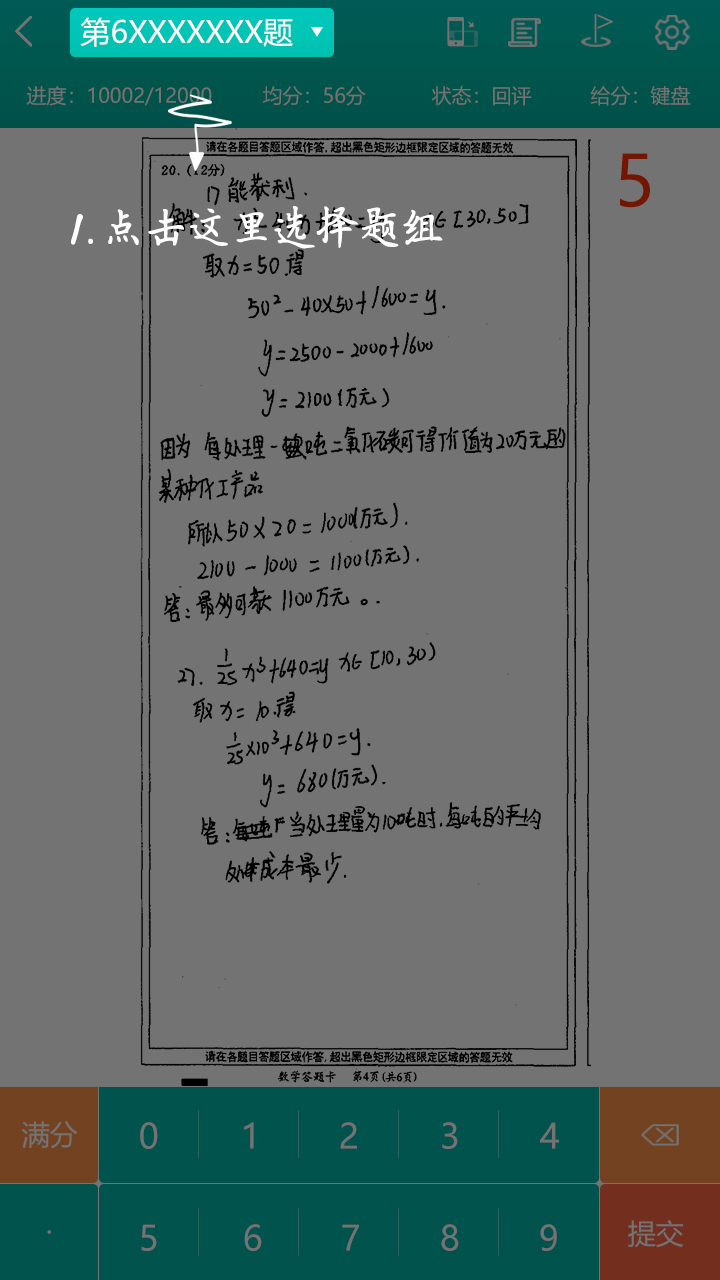 第6XXXXXXX题
进度：10002/12000 均分：56分 状态：回评 给分：键盘
请在各题目答题区域作答，超出黑色矩形边框限定区域的答题无效
5
20.（12分）
能获利.
1.点击这里选择题组
∈[30,50]
取x=50得
50²-40×50+1600=y.
y=2500-2000+1600
y=2100(万元)
因为 每处理一吨二氧化碳可得价值为20万元的
某种化工产品
所以50×20=1000(万元).
2100-1000=1100(万元).
答：最多可获1100万元。.
27. 1/25 x³+640=y x∈[10,30)
取x=10.得
1/25×10³+640=y.
y=680(万元).
答： 当处理量为100吨时.每吨的平均
成本最少.
请在各题目答题区域作答，超出黑色矩形边框限定区域的答题无效
数学答题卡 第4页(共6页)
满分 0 1 2 3 4
. 5 6 7 8 9 提交